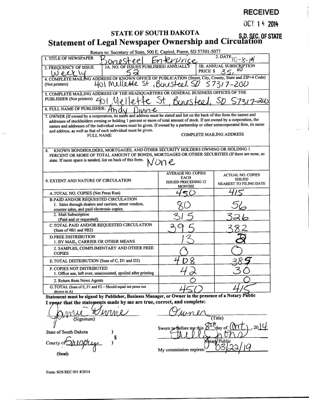 RECEIVED
OCT 14 2014
S.D. SEC. OF STATE
STATE OF SOUTH DAKOTA
Statement of Legal Newspaper Ownership and Circulation
Return to: Secretary of State, 500 E. Capitol, Pierre, SD 57501-5077
1. TITLE OF NEWSPAPER Bonesteel Enterprise 2. DATE 10-8-14
3. FREQUENCY OF ISSUE Weekly 3A. NO. OF ISSUES PUBLISHED ANNUALLY 52 3B. ANNUAL SUBSCRIPTION PRICE $
4. COMPLETE MAILING ADDRESS OF KNOWN OFFICE OF PUBLICATION (Street, City, County, State and ZIP+4 Code)
(Not printers) 401 Mellette St., Bonesteel SD 57317-200
5. COMPLETE MAILING ADDRESS OF THE HEADQUARTERS OR GENERAL BUSINESS OFFICES OF THE
PUBLISHER (Not printers) 401 Mellette St, Bonesteel, SD 57317-200
6. FULL NAME OF PUBLISHER: Andy Divine
7. OWNER (If owned by a corporation, its name and address must be stated and also immediately
addresses of stockholders owning or holding 1 percent or more of total amount of stock. If not owned by a corporation, the
names and addresses of the individual owners must be given. If owned by a partnership or other unincorporated firm, its name
and address, as well as that of each individual must be given.
FULL NAME COMPLETE MAILING ADDRESS
8. KNOWN BONDHOLDERS, MORTGAGEES, AND OTHER SECURITY HOLDERS OWNING OR HOLDING 1
PERCENT OR MORE OF TOTAL AMOUNT OF BONDS, MORTGAGES OR OTHER SECURITIES (If there are none, so
state. If more space is needed, list on back of this form. None
9. EXTENT AND NATURE OF CIRCULATION
AVERAGE NO. COPIES EACH ISSUED PRECEDING 12 MONTHS
ACTUAL NO. COPIES ISSUED NEAREST TO FILING DATE
A. TOTAL NO. COPIES (Net Press Run) 450 415
B. PAID AND/OR REQUESTED CIRCULATION
1. Sales through dealers and carriers, street vendors, counter sales, and paid electronic copies. 80 56
2. Mail Subscription (Paid and or requested) 315 326
C. TOTAL PAID AND/OR REQUESTED CIRCULATION (Sum of 9B1 and 9B2) 395 382
D. FREE DISTRIBUTION
1. BY MAIL, CARRIER OR OTHER MEANS 13
2. SAMPLES, COMPLIMENTARY AND OTHER FREE COPIES
E. TOTAL DISTRIBUTION (Sum of C, D1 and D2) 408 385
F. COPIES NOT DISTRIBUTED
1. Office use, left over, unaccounted, spoiled after printing 42 30
2. Return from News Agents 0 0
G. TOTAL (Sum of E, F1 and F2 - Should equal net press run shown in A) 450 415
Statement must be signed by Publisher, Business Manager, or Owner in the presence of a Notary Public
I swear that the statements made by me are true, correct, and complete:
Owner
(Signature) (Title)
State of South Dakota )
§
County of Gregory )
(Seal)
Sworn to before me this 8th day of Oct, 2014
Notary Public
My commission expires: 03/22/19
Form: SOS REC 051 8/2014